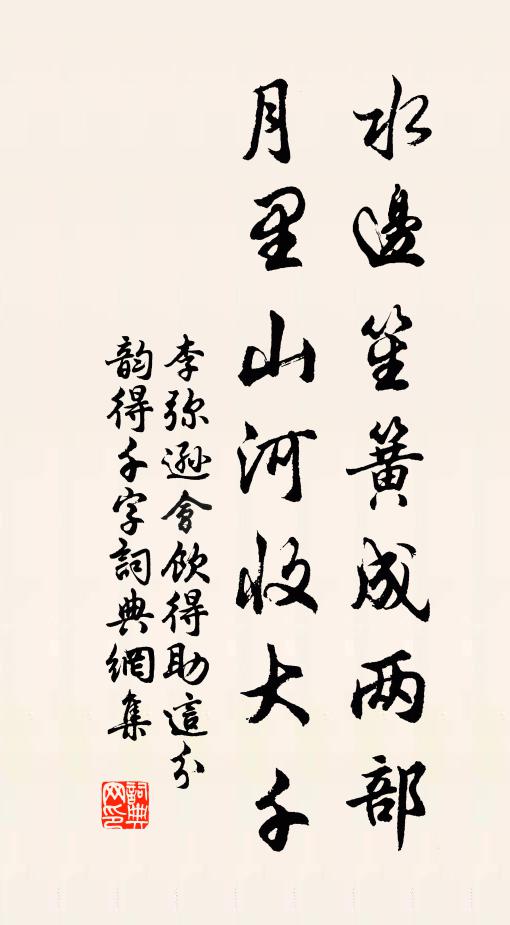 水邊笙簧成两部
月里山河收大千
李弥遜會飲得助這分
韵得千字詞典網集
詞典网印